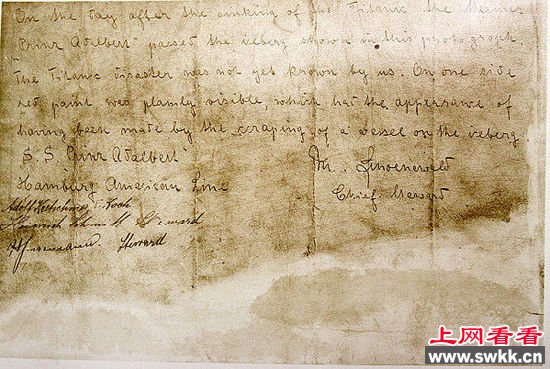 On the day after the sinking of the Titanic, the steamer
Prinz Adalbert passed the iceberg shown in this photograph.
The Titanic disaster was not yet known by us. On one side
red paint was plainly visible, which had the appearance of
having been made by the scraping of a vessel on the iceberg.
S.S. Prinz Adalbert
M. Linoenewald
Hamburg American Line
Chief Steward
Steward
Steward
上网看看
www.swkk.cn